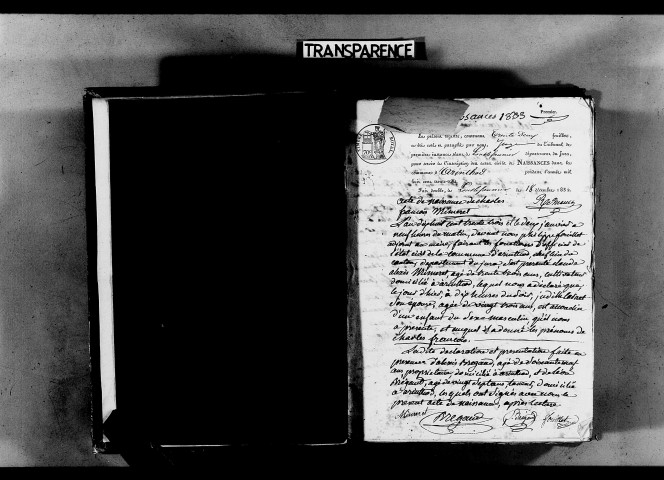 TRANSPARENCE
Naissances 1833
Premier.
Le présent registre, contenant trente deux feuillets,
a été coté et paraphé par nous, Juge du Tribunal de
première instance séant à Lons le Saunier département du Jura,
pour servir à l'inscription des actes civils de NAISSANCES dans la
commune d'Arinthod pendant l'année mil
huit cent trente-trois
Fait double, à Lons le Saunier le 18 décembre 1832.
acte de naissance de charles
francois Mimeret
L'an dix huit cent trente trois et le deux janvier à
neuf heures du matin, devant nous philippe fouillet
adjoint au maire, faisant les fonctions d'officier de
l'état civil de la commune d'arinthod, chef lieu de
canton, département du jura, s'est présenté claude
alexis Mimeret, agé de trente trois ans, cultivateur
domicilié à arinthod, lequel nous a déclaré que,
le jour d'hier, à dix heures du soir, judith
son épouse, agée de vingt trois ans, est accouchée
d'un enfant du sexe masculin qu'il nous
a présenté, et auquel il a donné les prénoms de
charles francois.
Ladite déclaration et présentation faite en
présence d'alexis Bregand, agé de soixante neuf
ans propriétaire, domicilié à arinthod, et de
Bregand, agé de vingt sept ans, domicilié
à arinthod, lesquels ont signé avec nous le
présent acte de naissance, après lecture
Mimeret Bregand Bregand fouillet